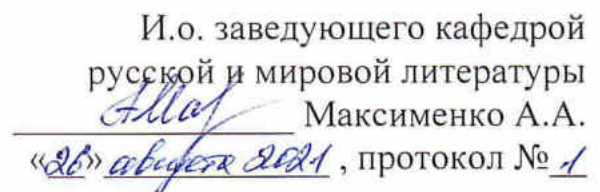 И.о. заведующего кафедрой
русской и мировой литературы
Максименко А.А.
«26» августа 2021 , протокол № 1